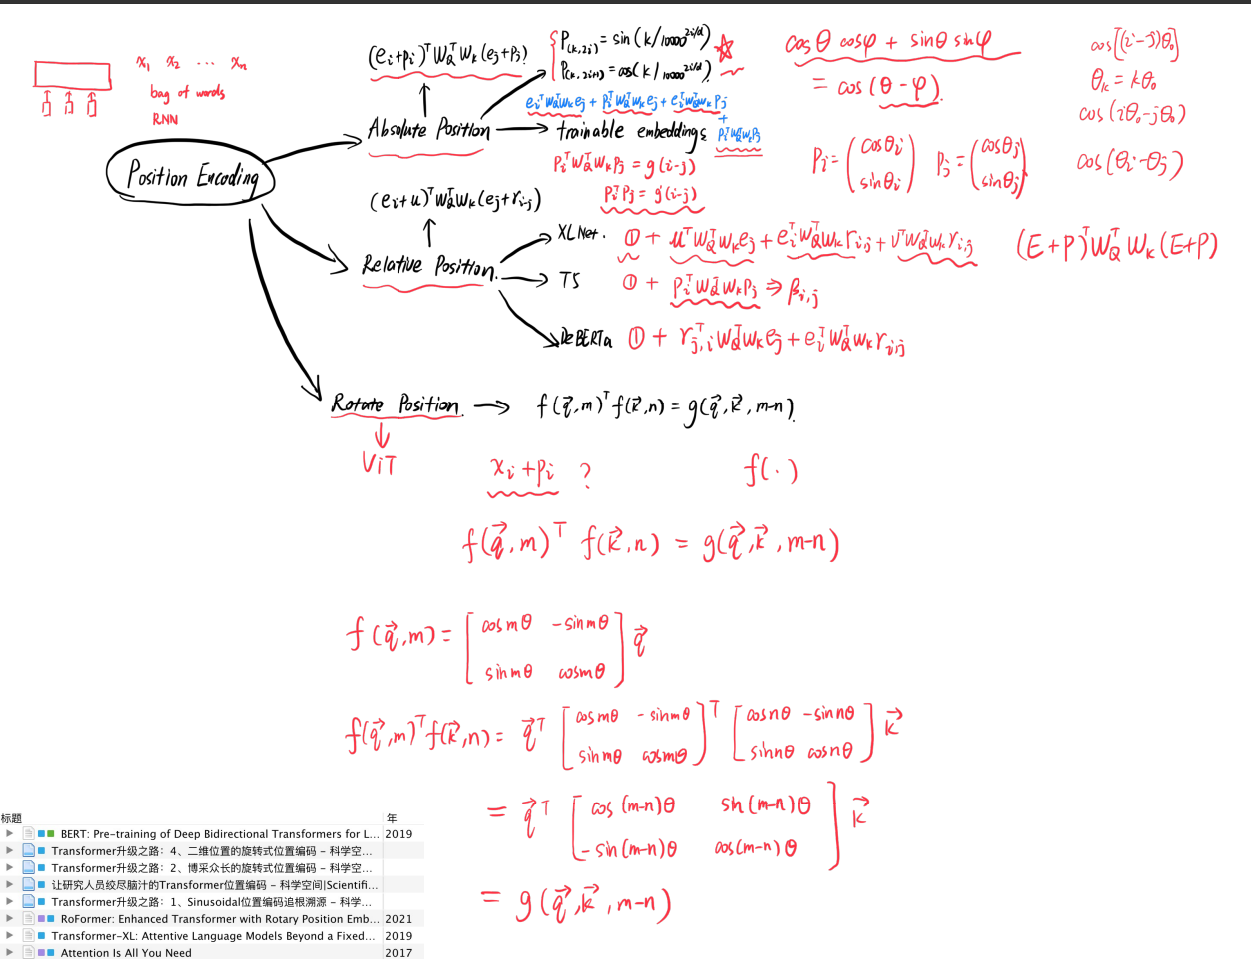 x₁ x₂ ... xₙ
bag of words
RNN
Position Encoding
(eᵢ+pᵢ)ᵀW_QᵀW_K(eⱼ+pⱼ)
P₍ₖ,₂ⱼ₎ = sin(k/10000^{2i/d})
P₍ₖ,₂ᵢ₊₁₎ = cos(k/10000^{2i/d})
eᵢᵀW_QᵀW_Keⱼ + pᵢᵀW_QᵀW_Keⱼ + eᵢᵀW_QᵀW_Kpⱼ
+
pᵢᵀW_QᵀW_Kpⱼ
Absolute Position
trainable embeddings
pᵢᵀW_QᵀW_Kpⱼ = g(i-j)
pᵢᵀpⱼ = g(i-j)
cosθ cosφ + sinθ sinφ
= cos(θ-φ)
cos[(i-j)θ₀]
θₖ = kθ₀
cos(iθ₀-jθ₀)
cos(θᵢ-θⱼ)
pᵢ = (cosθᵢ
sinθᵢ)
pⱼ = (cosθⱼ
sinθⱼ)
(eᵢ+u)ᵀW_QᵀW_K(eⱼ+rᵢ₋ⱼ)
Relative Position
XLNet. ① + uᵀW_QᵀW_Keⱼ + eᵢᵀW_QᵀW_Krᵢ,ⱼ + vᵀW_QᵀW_Krᵢ,ⱼ
(E+P)ᵀW_QᵀW_K(E+P)
T5 ① + pᵢᵀW_QᵀW_Kpⱼ ⇒ βᵢ,ⱼ
DeBERTa ① + rⱼ,ᵢᵀW_QᵀW_Keⱼ + eᵢᵀW_QᵀW_Krᵢ,ⱼ
Rotate Position
f(q⃗,m)ᵀf(k⃗,n) = g(q⃗,k⃗,m-n)
ViT
xᵢ+pᵢ ?
f(·)
f(q⃗,m)ᵀ f(k⃗,n) = g(q⃗,k⃗,m-n)
f(q⃗,m) = [cosmθ -sinmθ
sinmθ cosmθ] q⃗
f(q⃗,m)ᵀf(k⃗,n) = q⃗ᵀ [cosmθ -sinmθ
sinmθ cosmθ]ᵀ [cosnθ -sinnθ
sinnθ cosnθ] k⃗
= q⃗ᵀ [cos(m-n)θ sin(m-n)θ
-sin(m-n)θ cos(m-n)θ] k⃗
= g(q⃗,k⃗,m-n)
标题 年
BERT: Pre-training of Deep Bidirectional Transformers for L... 2019
Transformer升级之路：4、二维位置的旋转式位置编码 - 科学空...
Transformer升级之路：2、博采众长的旋转式位置编码 - 科学空...
让研究人员绞尽脑汁的Transformer位置编码 - 科学空间|Scientifi...
Transformer升级之路：1、Sinusoidal位置编码追根溯源 - 科学...
RoFormer: Enhanced Transformer with Rotary Position Emb... 2021
Transformer-XL: Attentive Language Models Beyond a Fixed... 2019
Attention Is All You Need 2017